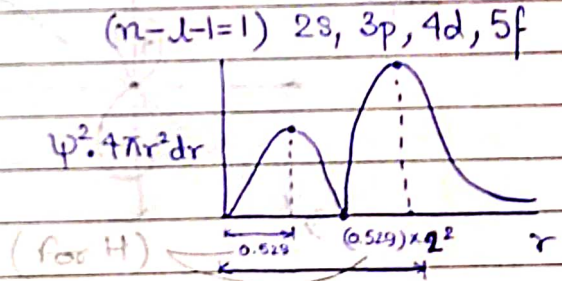 (n-l-1=1) 2s, 3p, 4d, 5f
ψ².4πr²dr
(for H)
0.529
(0.529)×2²
r